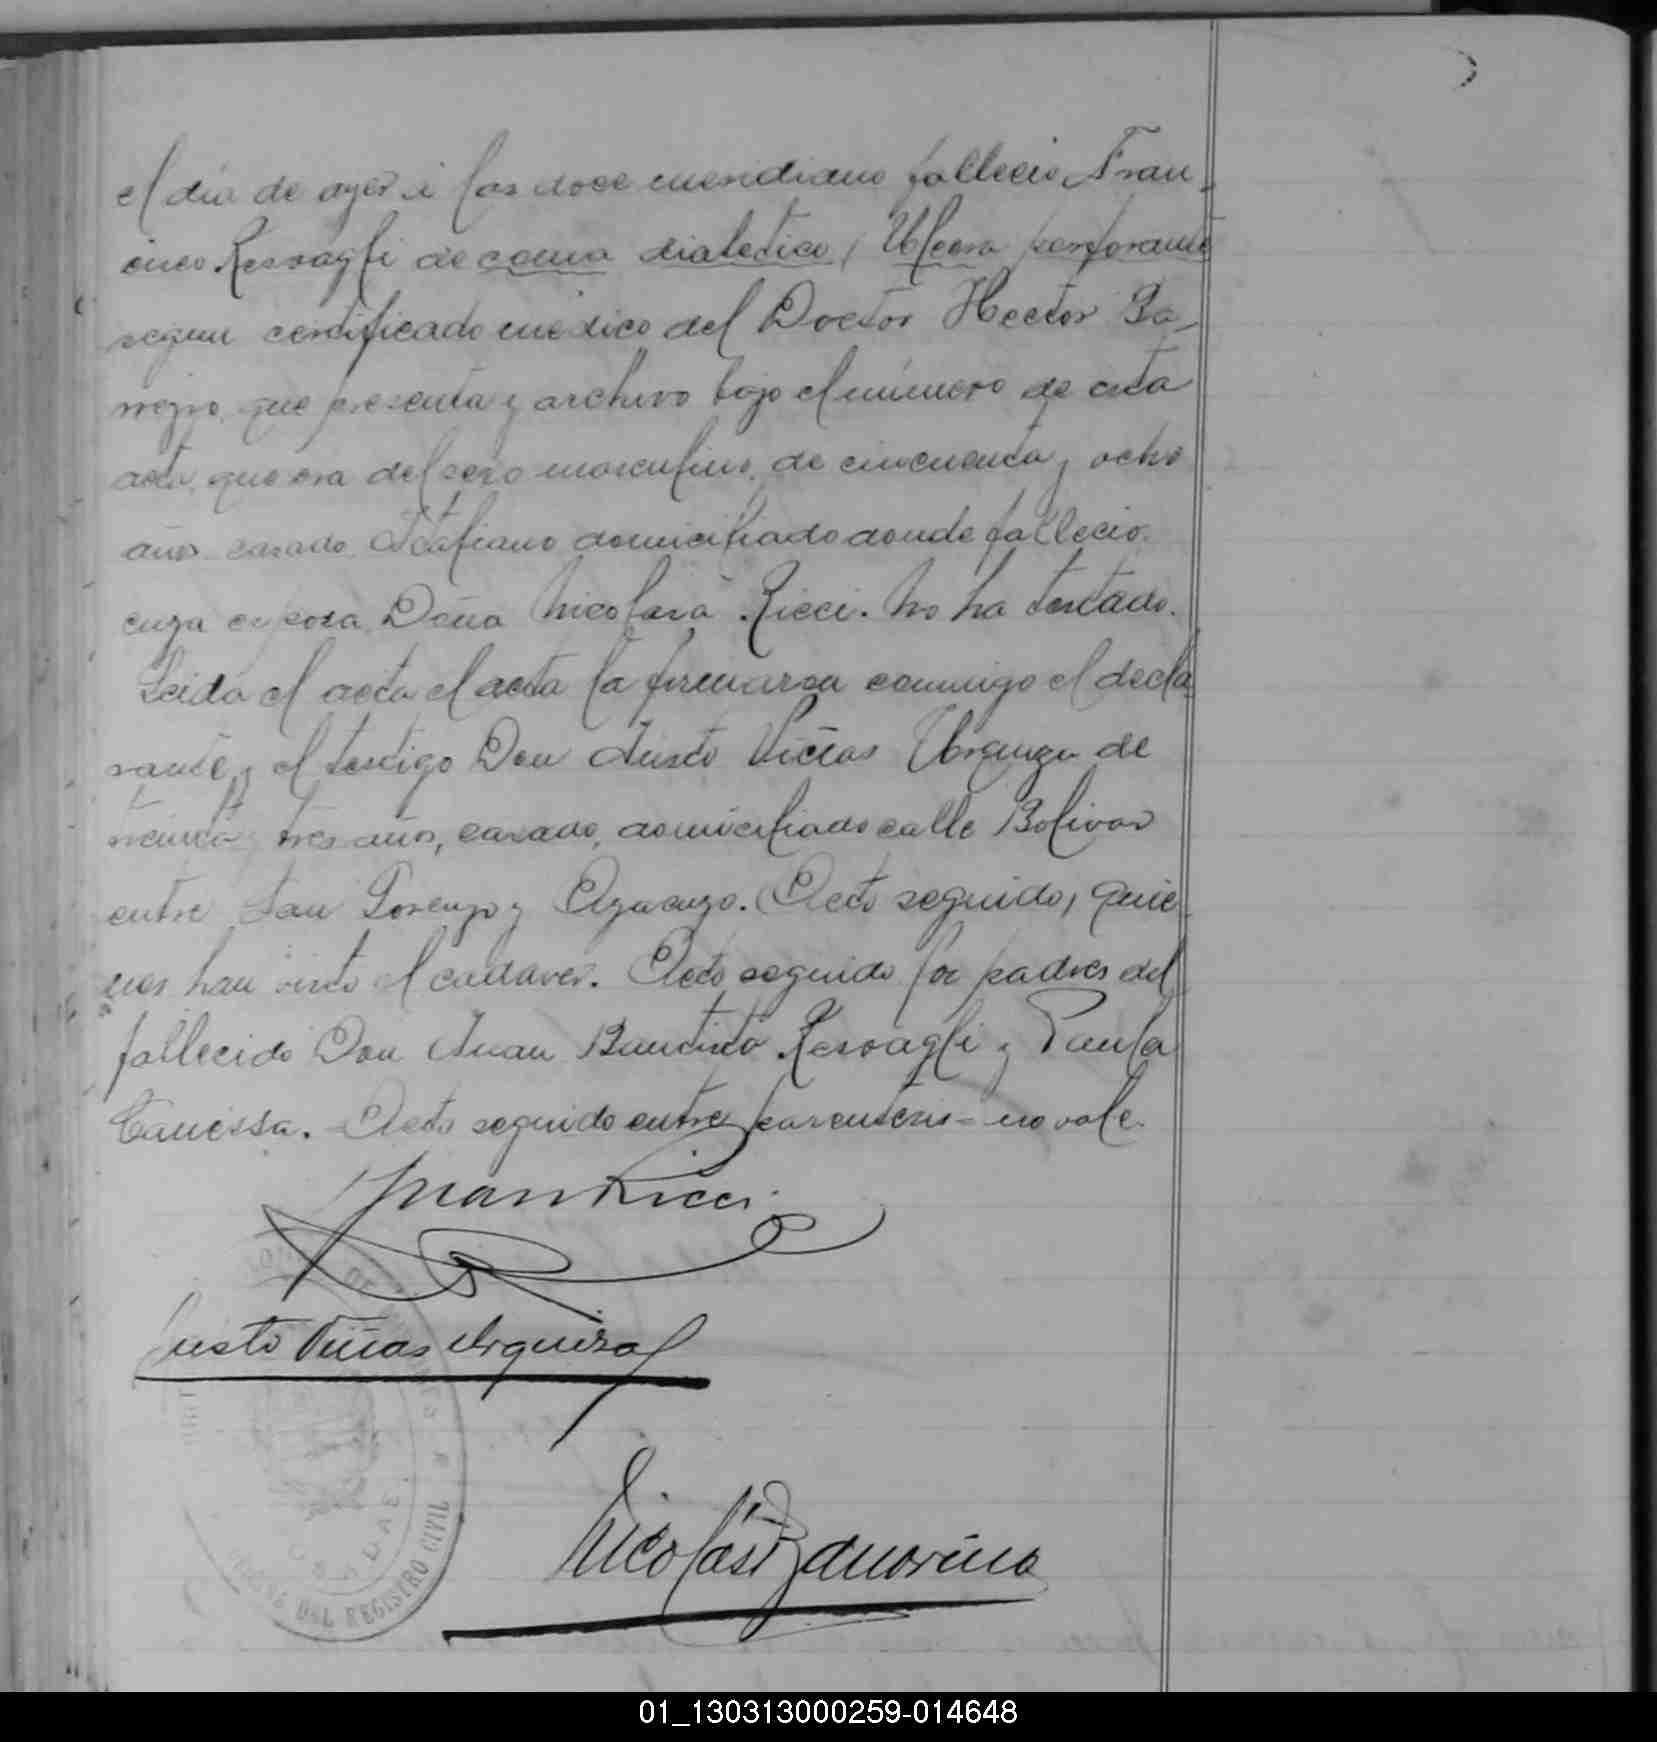 el dia de ayer i las doce meridiano fallecio Fran-
cisco Resvagli de coma diabetico, Ulcera perforante
segun certificado medico del Doctor Hector Ba-
rrejro, que presenta y archivo bajo el número de esta
acta, que era del sexo masculino, de cincuenta y ocho
años casado Italiano domiciliado donde fallecio.
cuya esposa Doña Nicolasa Ricci. No ha testado.
Leida el acta el acta la firmaron conmigo el decla
rante y el testigo Don Justo Viñas Urquiza de
treinta y tres años, casado, domiciliado calle Bolivar
entre San Lorenzo y Ayacuyo. (Acto seguido, quie
nes han visto el cadaver. Acto seguido los padres del
fallecido Don Juan Bautista Resvagli y Paula
Canessa. - Acto seguido entre parentesis - no vale.
Juan Ricci
Justo Viñas Urquiza
Nicolás Zamorino
DEL REGISTRO CIVIL
01_130313000259-014648